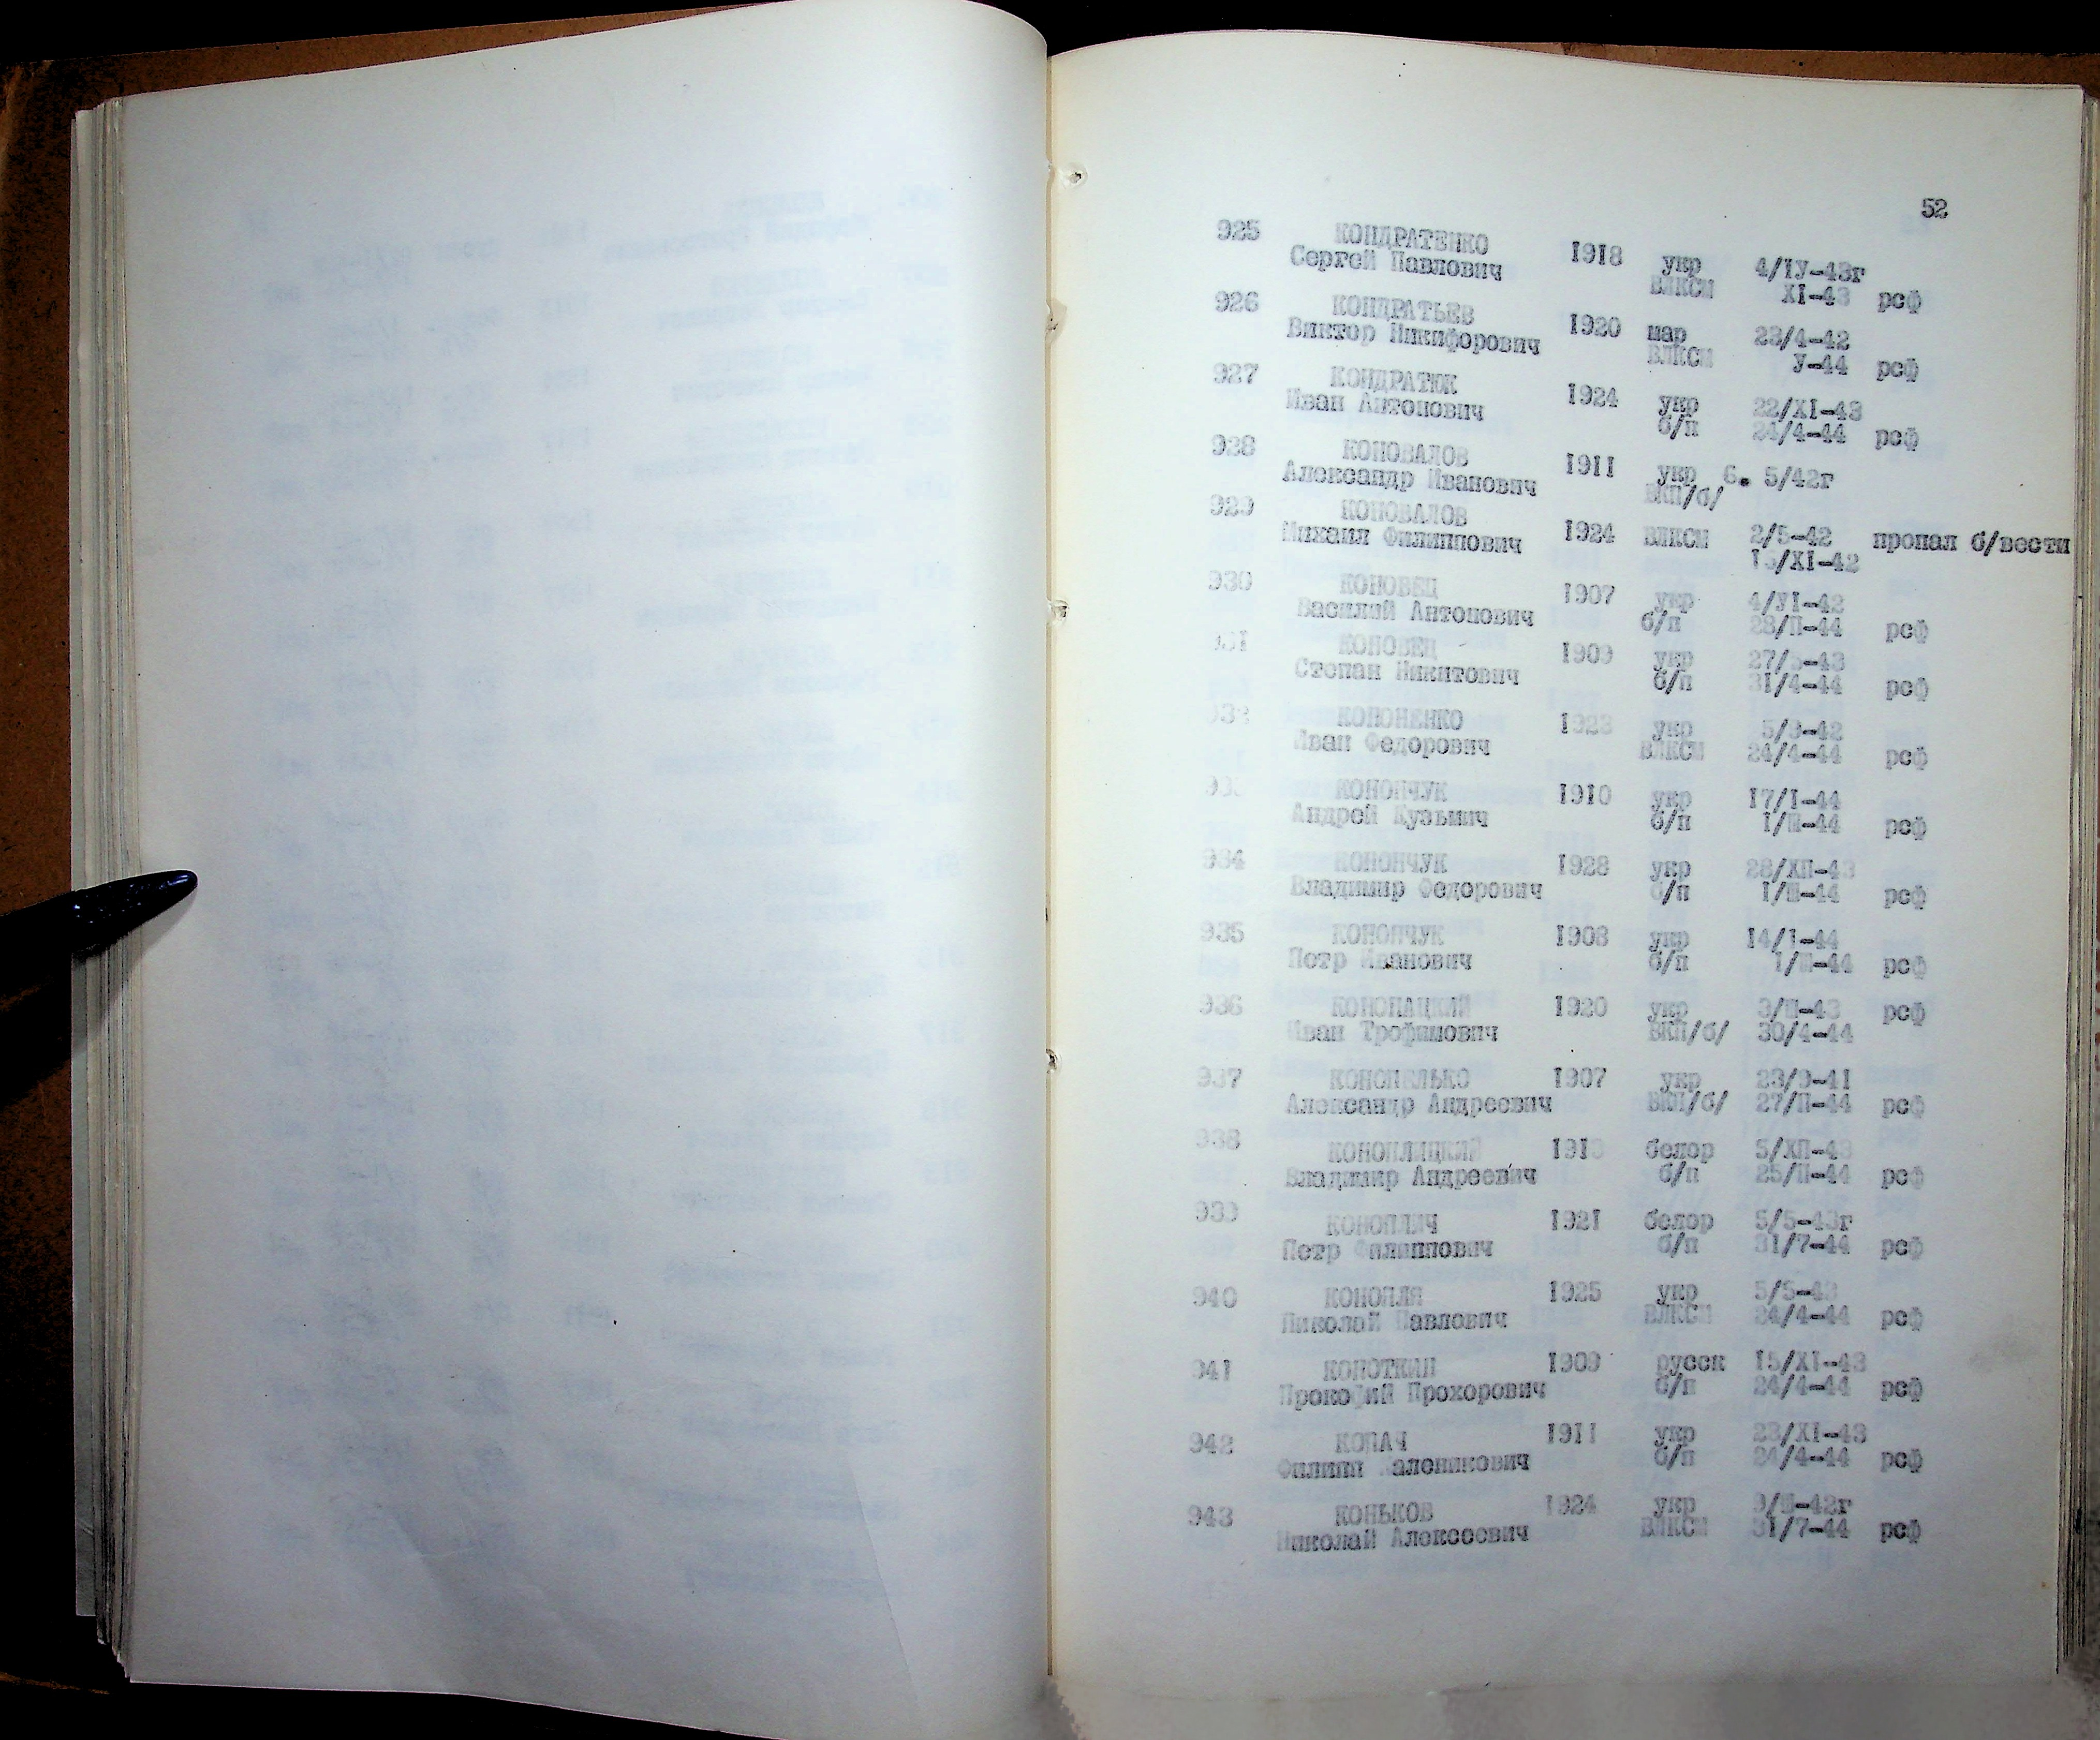 52
925 КОНДРАТЕНКО
Сергей Павлович 1918 укр 4/IУ-43г
ВЛКСМ XI-43 рсф
926 КОНДРАТЬЕВ
Виктор Никифорович 1920 мар 23/4-42
ВЛКСМ У-44 рсф
927 КОНДРАТЮК
Иван Антонович 1924 укр 22/XI-43
б/п 24/4-44 рсф
928 КОНОВАЛОВ
Александр Иванович 1911 укр 6. 5/42г
ВКП/б/
929 КОНОВАЛОВ
Михаил Филиппович 1924 ВЛКСМ 2/5-42 пропал б/вести
15/XI-42
930 КОНОВЕЦ
Василий Антонович 1907 укр 4/УI-42
б/п 28/П-44 рсф
931 КОНОВЕЦ
Степан Никитович 1909 укр 27/5-43
б/п 31/4-44 рсф
932 КОНОНЕНКО 1923 укр 5/3-42
Иван Федорович ВЛКСМ 24/4-44 рсф
933 КОНОНЧУК 1910 укр 17/I-44
Андрей Кузьмич б/п 1/Ш-44 рсф
934 КОНОНЧУК 1928 укр 28/ХП-43
Владимир Федорович б/п 1/Ш-44 рсф
935 КОНОНЧУК 1908 укр 14/I-44
Петр Иванович б/п 1/Ш-44 рсф
936 КОНОПАЦКИЙ 1920 укр 3/Ш-43 рсф
Иван Трофимович ВКП/б/ 30/4-44
937 КОНОПЕЛЬКО 1907 укр 23/9-41
Александр Андреевич ВКП/б/ 27/П-44 рсф
938 КОНОПЛИЦКИЙ 1913 белор 5/ХП-43
Владимир Андреевич б/п 25/П-44 рсф
939 КОНОПЛИЧ 1921 белор 5/5-43г
Петр Филиппович б/п 31/7-44 рсф
940 КОНОПЛЯ 1925 укр 5/5-43
Николай Павлович ВЛКСМ 24/4-44 рсф
941 КОНОТКИН 1909 русск 15/XI-43
Прокофий Прохорович б/п 24/4-44 рсф
942 КОПАЧ 1911 укр 23/XI-43
Филипп б/п 24/4-44 рсф
943 КОНЬКОВ 1924 укр 9/Ш-42г
Николай Алексеевич ВЛКСМ 31/7-44 рсф